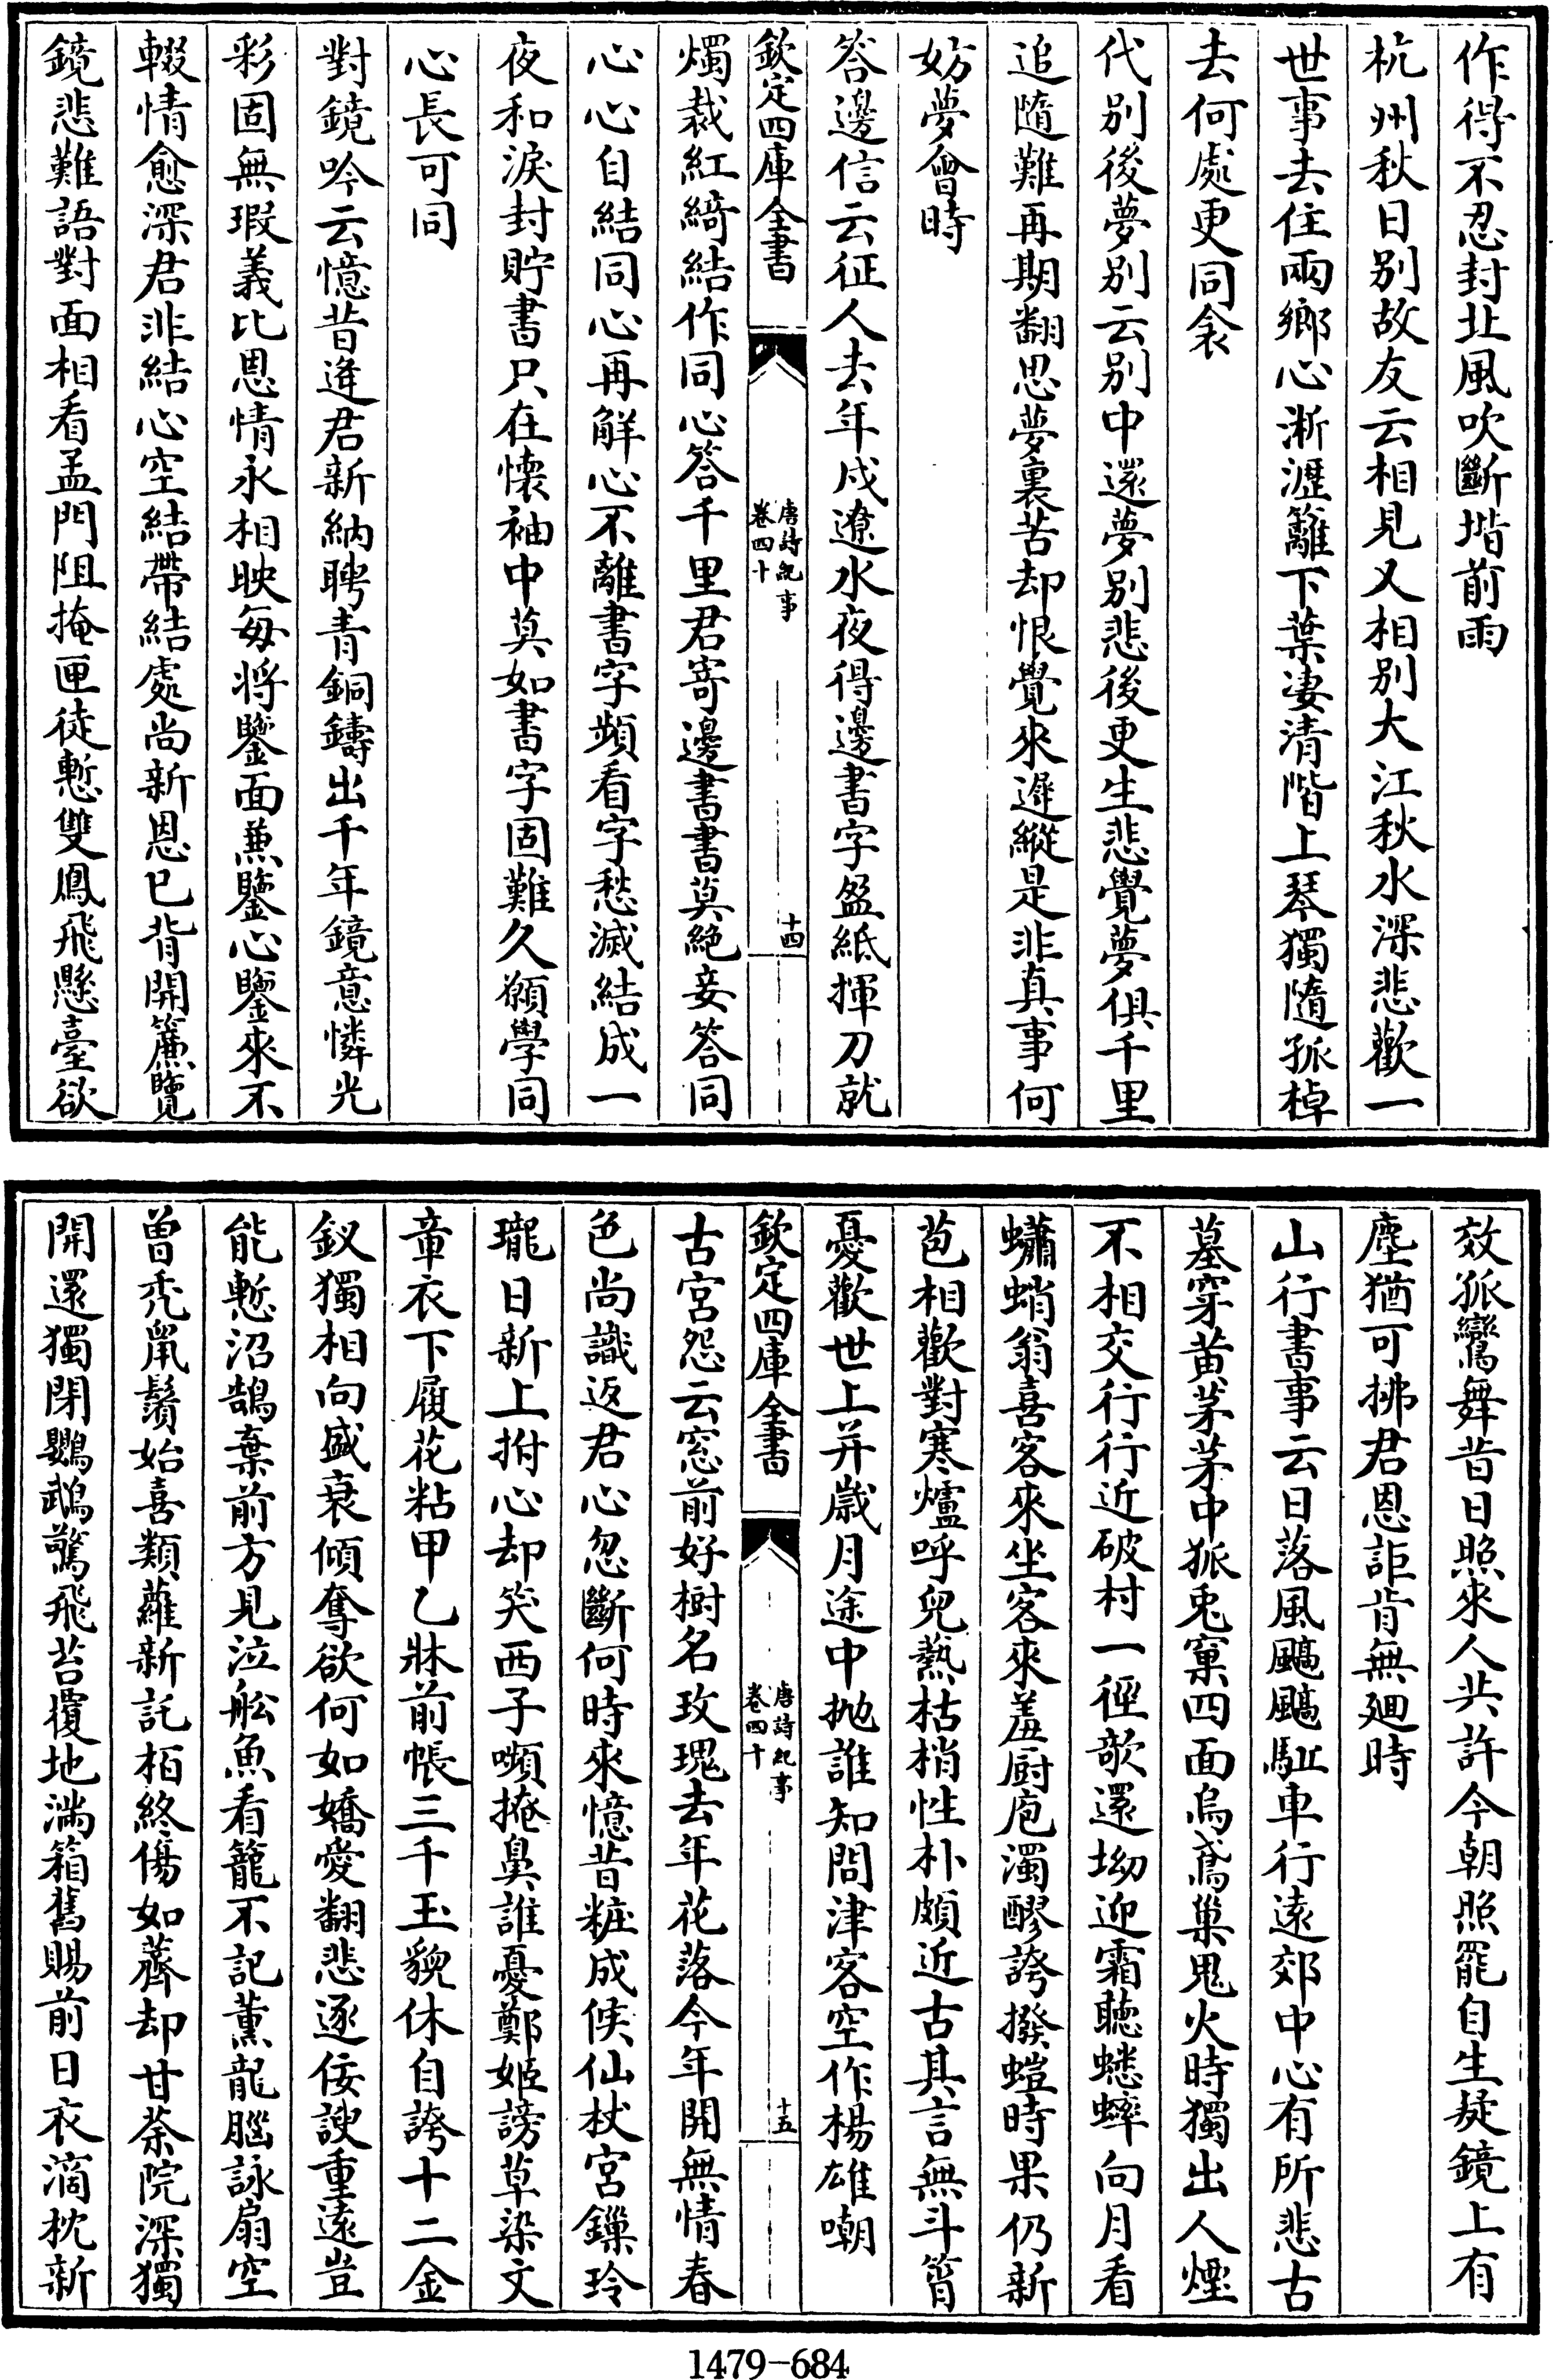 作得不忍封北風吹斷堦前雨
杭州秋日别故友云相見又相别大江秋水深悲歡一
世事去住兩鄉心淅瀝籬下葉凄清階上琴獨隨孤棹
去何處更同衾
代别後夢别云别中還夢别悲後更生悲覺夢俱千里
追隨難再期翻思夢裏苦却恨覺來遲縱是非真事何
妨夢會時
答邊信云征人去年戍遼水夜得邊書字盈紙揮刀就
欽定四庫全書
唐詩紀事
卷四十
十四
燭裁紅綺結作同心答千里君寄邊書書莫絶妾答同
心心自結同心再解心不離書字頻看字愁滅結成一
夜和淚封貯書只在懷袖中莫如書字固難久願學同
心長可同
對鏡吟云憶昔逢君新納聘青銅鑄出千年鏡意憐光
彩固無瑕義比恩情永相映每将鑒面兼鑒心鑒來不
輟情愈深君非結心空結帶結處尚新恩已背開簾覽
鏡悲難語對面相看孟門阻掩匣徒慙雙鳳飛懸臺欲
效孤鸞舞昔日照來人共許今朝照罷自生疑鏡上有
塵猶可拂君恩詎肯無廻時
山行書事云日落風飈飈駈車行遠郊中心有所悲古
墓穿黄茅茅中狐兎窠四面烏鳶巢鬼火時獨出人煙
不相交行行近破村一徑欹還坳迎霜聽蟋蟀向月看
蠨蛸翁喜客來坐客來羞厨庖濁醪誇撥螘時果仍新
苞相歡對寒爐呼兒爇枯梢性朴頗近古其言無斗筲
憂歡世上并歲月途中抛誰知問津客空作楊雄嘲
欽定四庫全書
唐詩紀事
卷四十
十五
古宫怨云窓前好樹名玫瑰去年花落今年開無情春
色尚識返君心忽斷何時來憶昔粧成候仙杖宮鏁玲
瓏日新上拊心却笑西子嚬掩鼻誰憂鄭姬謗草染文
章衣下履花粘甲乙牀前帳三千玉貌休自誇十二金
釵獨相向盛衰傾奪欲何如嬌愛翻悲逐佞諛重遠豈
能慙沼鵠棄前方見泣船魚看籠不記薰龍腦詠扇空
曽禿鼠鬚始喜類蘿新託栢終傷如薺却甘荼院深獨
開還獨閉鸚鵡驚飛苔覆地滿箱舊賜前日衣滴枕新
1479-684